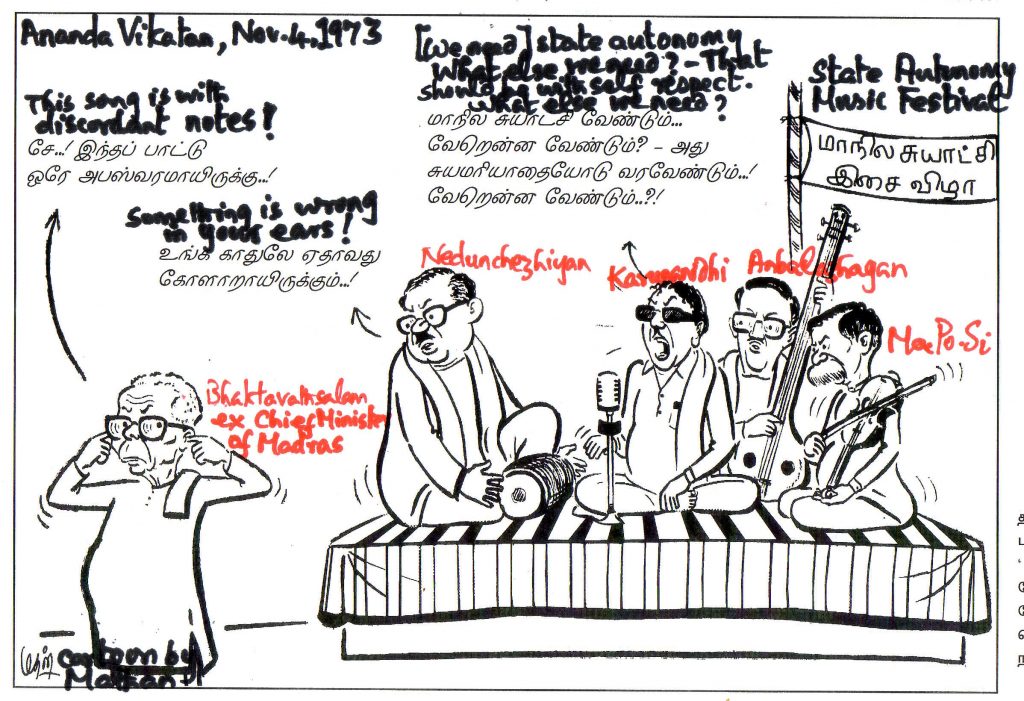 Ananda Vikatan, Nov. 4, 1973
[We need] state autonomy
What else we need? - That
should be with self respect.
What else we need?
மாநில சுயாட்சி வேண்டும்...
வேறென்ன வேண்டும்? - அது
சுயமரியாதையோடு வரவேண்டும்..!
வேறென்ன வேண்டும்..?!
State Autonomy
Music Festival
மாநில சுயாட்சி
இசை விழா
This song is with
discordant notes!
சே..! இந்தப் பாட்டு
ஒரே அபஸ்வரமாயிருக்கு..!
Something is wrong
in your ears!
உங்க காதுலே ஏதாவது
கோளாறாயிருக்கும்..!
Nedunchezhiyan
Karunanidhi
Anbalazhagan
Ma Po. Si
Bhaktavathsalam
ex Chief Minister
of Madras
மதன்
cartoon by
Mathan